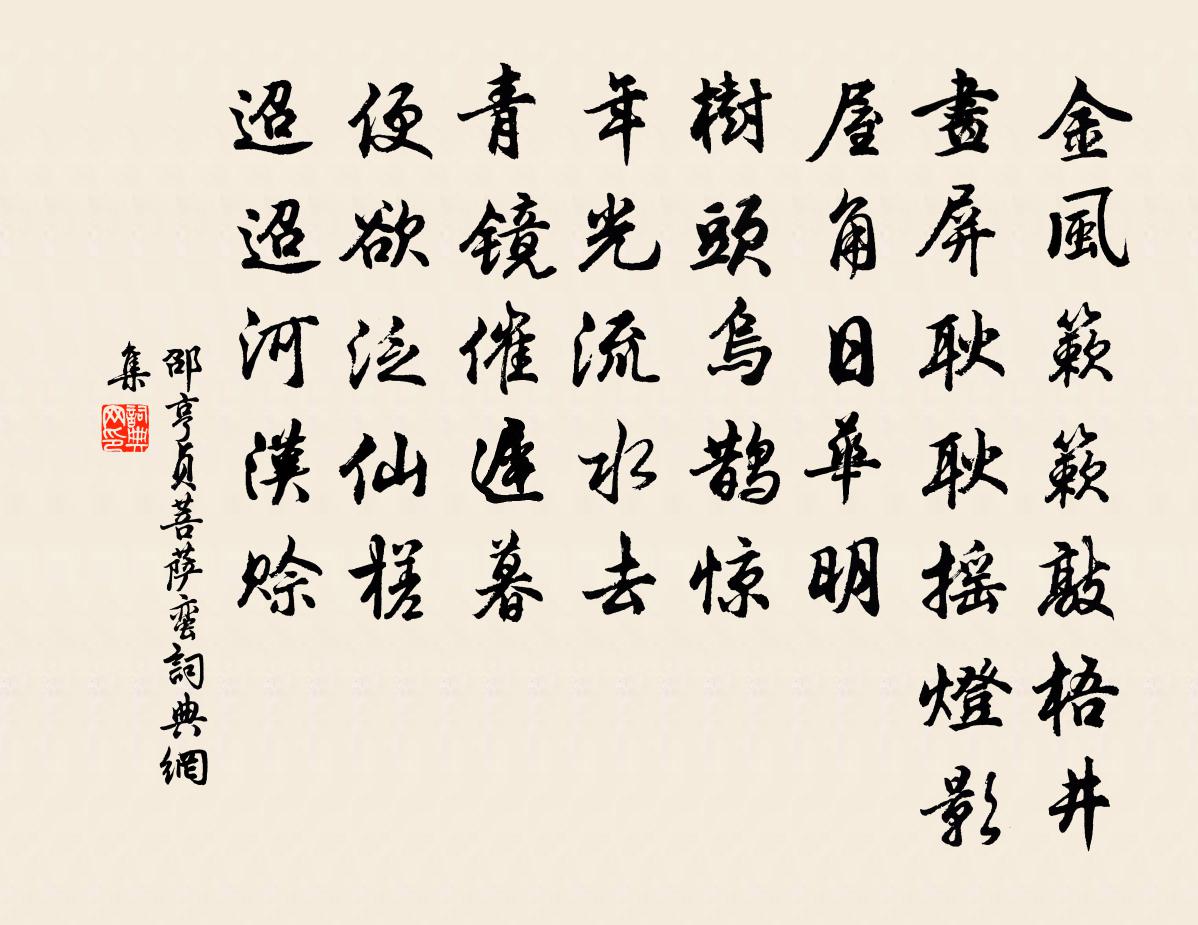 金風簌簌敲梧井
畫屏耿耿搖燈影
屋角日華明
樹頭烏鵲惊
年光流水去
青鏡催遲暮
便欲泛仙槎
迢迢河漢賒
邵亨貞菩萨蛮詞典網
集
詞典网印